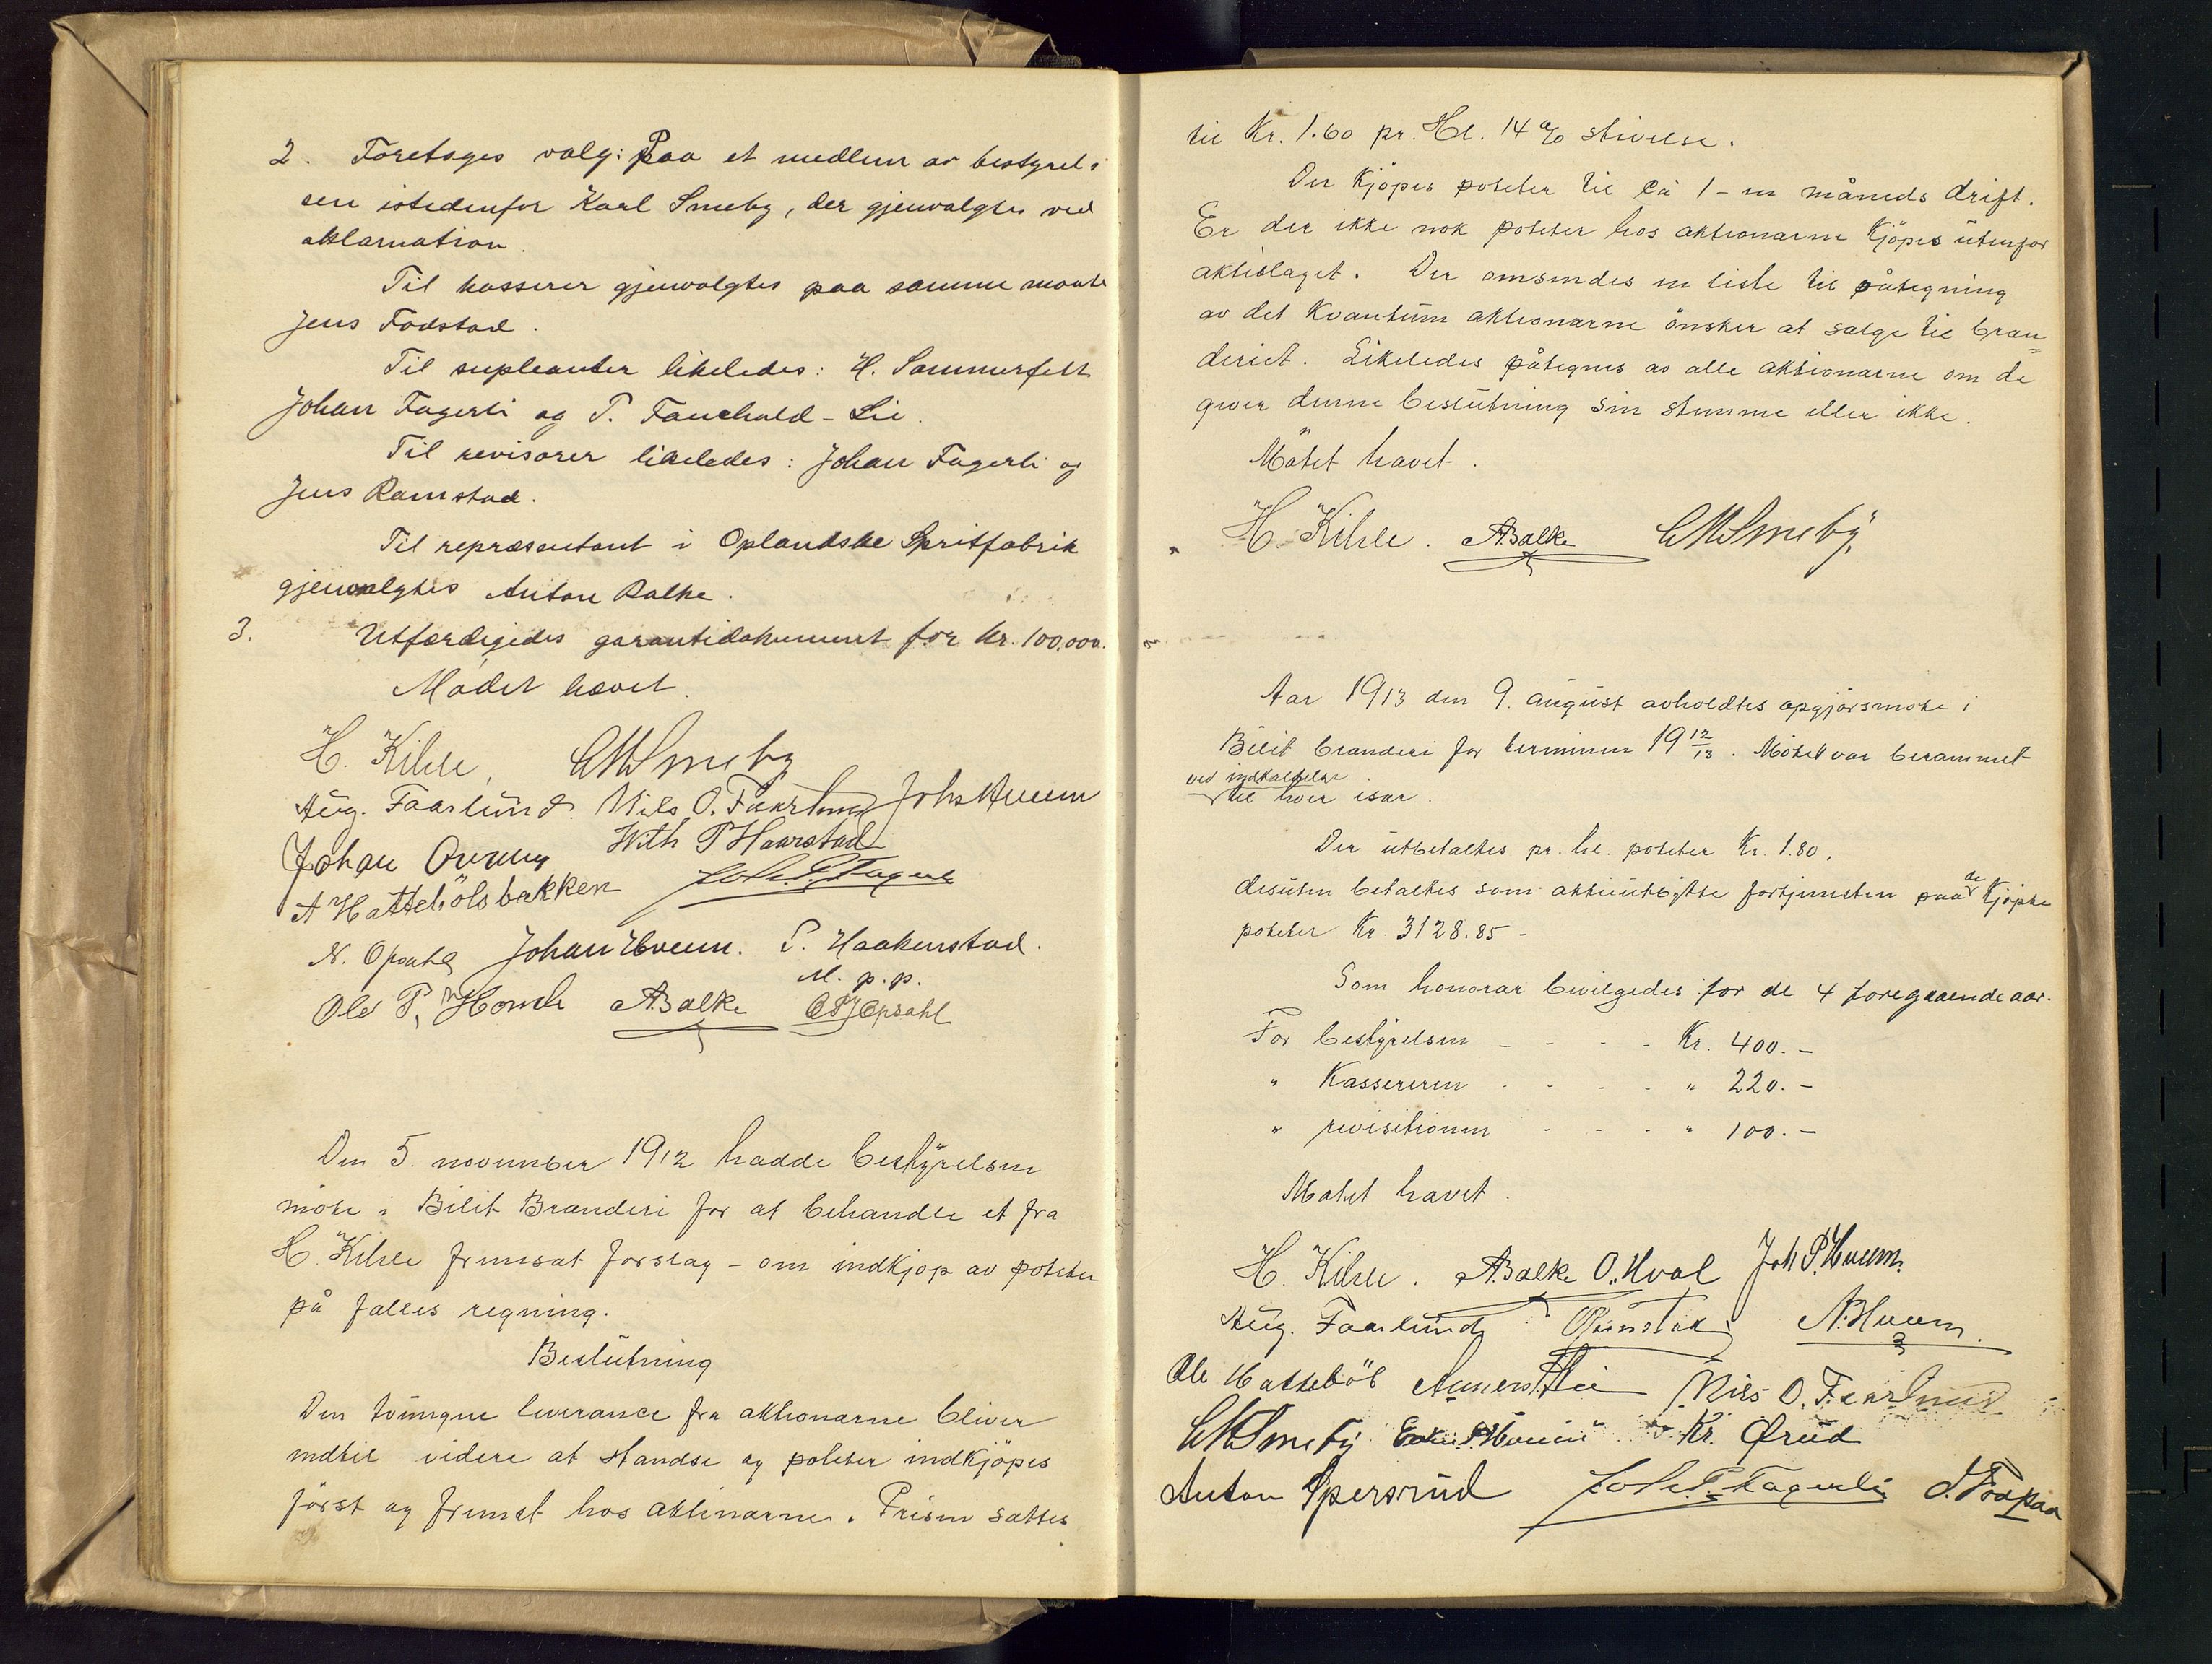 2. Foretoges valg: Paa et medlem av bestyrel-
sen istedenfor Karl Smeby, der gjenvalgtes ved
aklamation.
Til kasserer gjenvalgtes paa samme maate
Jens Fodstad.
Til supleanter likeledes: H. Sommerfelt
Johan Fagerli og P. Fauchald-Lie.
Til revisorer likeledes: Johan Fagerli og
Jens Ramstad.
Til repræsentant i Oplandske Spritfabrik
gjenvalgtes Anton Balke.
3. Utfærdigedes garantidokument for kr. 100.000.
Mødet hævet.
H. Kihle, CMSmeby
Aug. Faarlund. Nils O. Faarlund Johs Hveem
Johan Øvreby With P Haarstad
A Hattebölsbakken Joh. P. Fagerli
N. Opsahl Johan Hveem. P. Haakenstad.
M. p. p.
Ole P. Homb ABalke OPOpsahl
Den 5. november 1912 hadde bestÿrelsen
möte i Bilit Brænderi for at behandle et fra
H. Kihle fremsat forslag - om indkjøp av poteter
på fælles regning.
Beslutning
Den tvungne leverance fra aktionærne bliver
indtil videre at standse og poteter indkjöpes
först og fremst hos aktinærne. Prisen sættes
til Kr. 1.60 pr. Hl. 14 % stivelse.
Der Kjöpes poteter til ca 1-en måneds drift.
Er der ikke nok poteter hos aktionærne Kjöpes utenfor
aktislaget. Der omsendes en liste til påtegning
av det Kvantum aktionærne önsker at sælge til bræn=
deriet. Likeledes påtegnes av alle aktionærne om de
giver denne beslutning sin stemme eller ikke.
Mötet hævet.
H. Kihle. ABalke CMSmeby.
Aar 1913 den 9. august avholdtes opgjörsmöte i
Bilit brænderi for terminen 19 12/13. Mötet var berammet
ved indkaldelse
til hver især.
Der utbetaltes pr. hl. poteter Kr. 1.80,
desuten betaltes som aktieutbytte fortjenesten paa de Kjöpte
poteter Kr. 3128.85 -
Som honorar bevilgedes for de 4 foregaaende aar.
For bestÿrelsen - - - - Kr. 400.-
" Kassereren - - - - " 220.-
" revisitionen - - - " 100.-
Mötet hævet.
H. Kihle. ABalke O. Hval Joh P. Hveem.
Aug. Faarlund Ramstad A. Hveem.
Ole Hatteböl Anners Lie Nils O. Faarlund
CMSmeby Hveem Kr. Ørud
Anton Spersrud Joh. P. Fagerli J. Fodstad